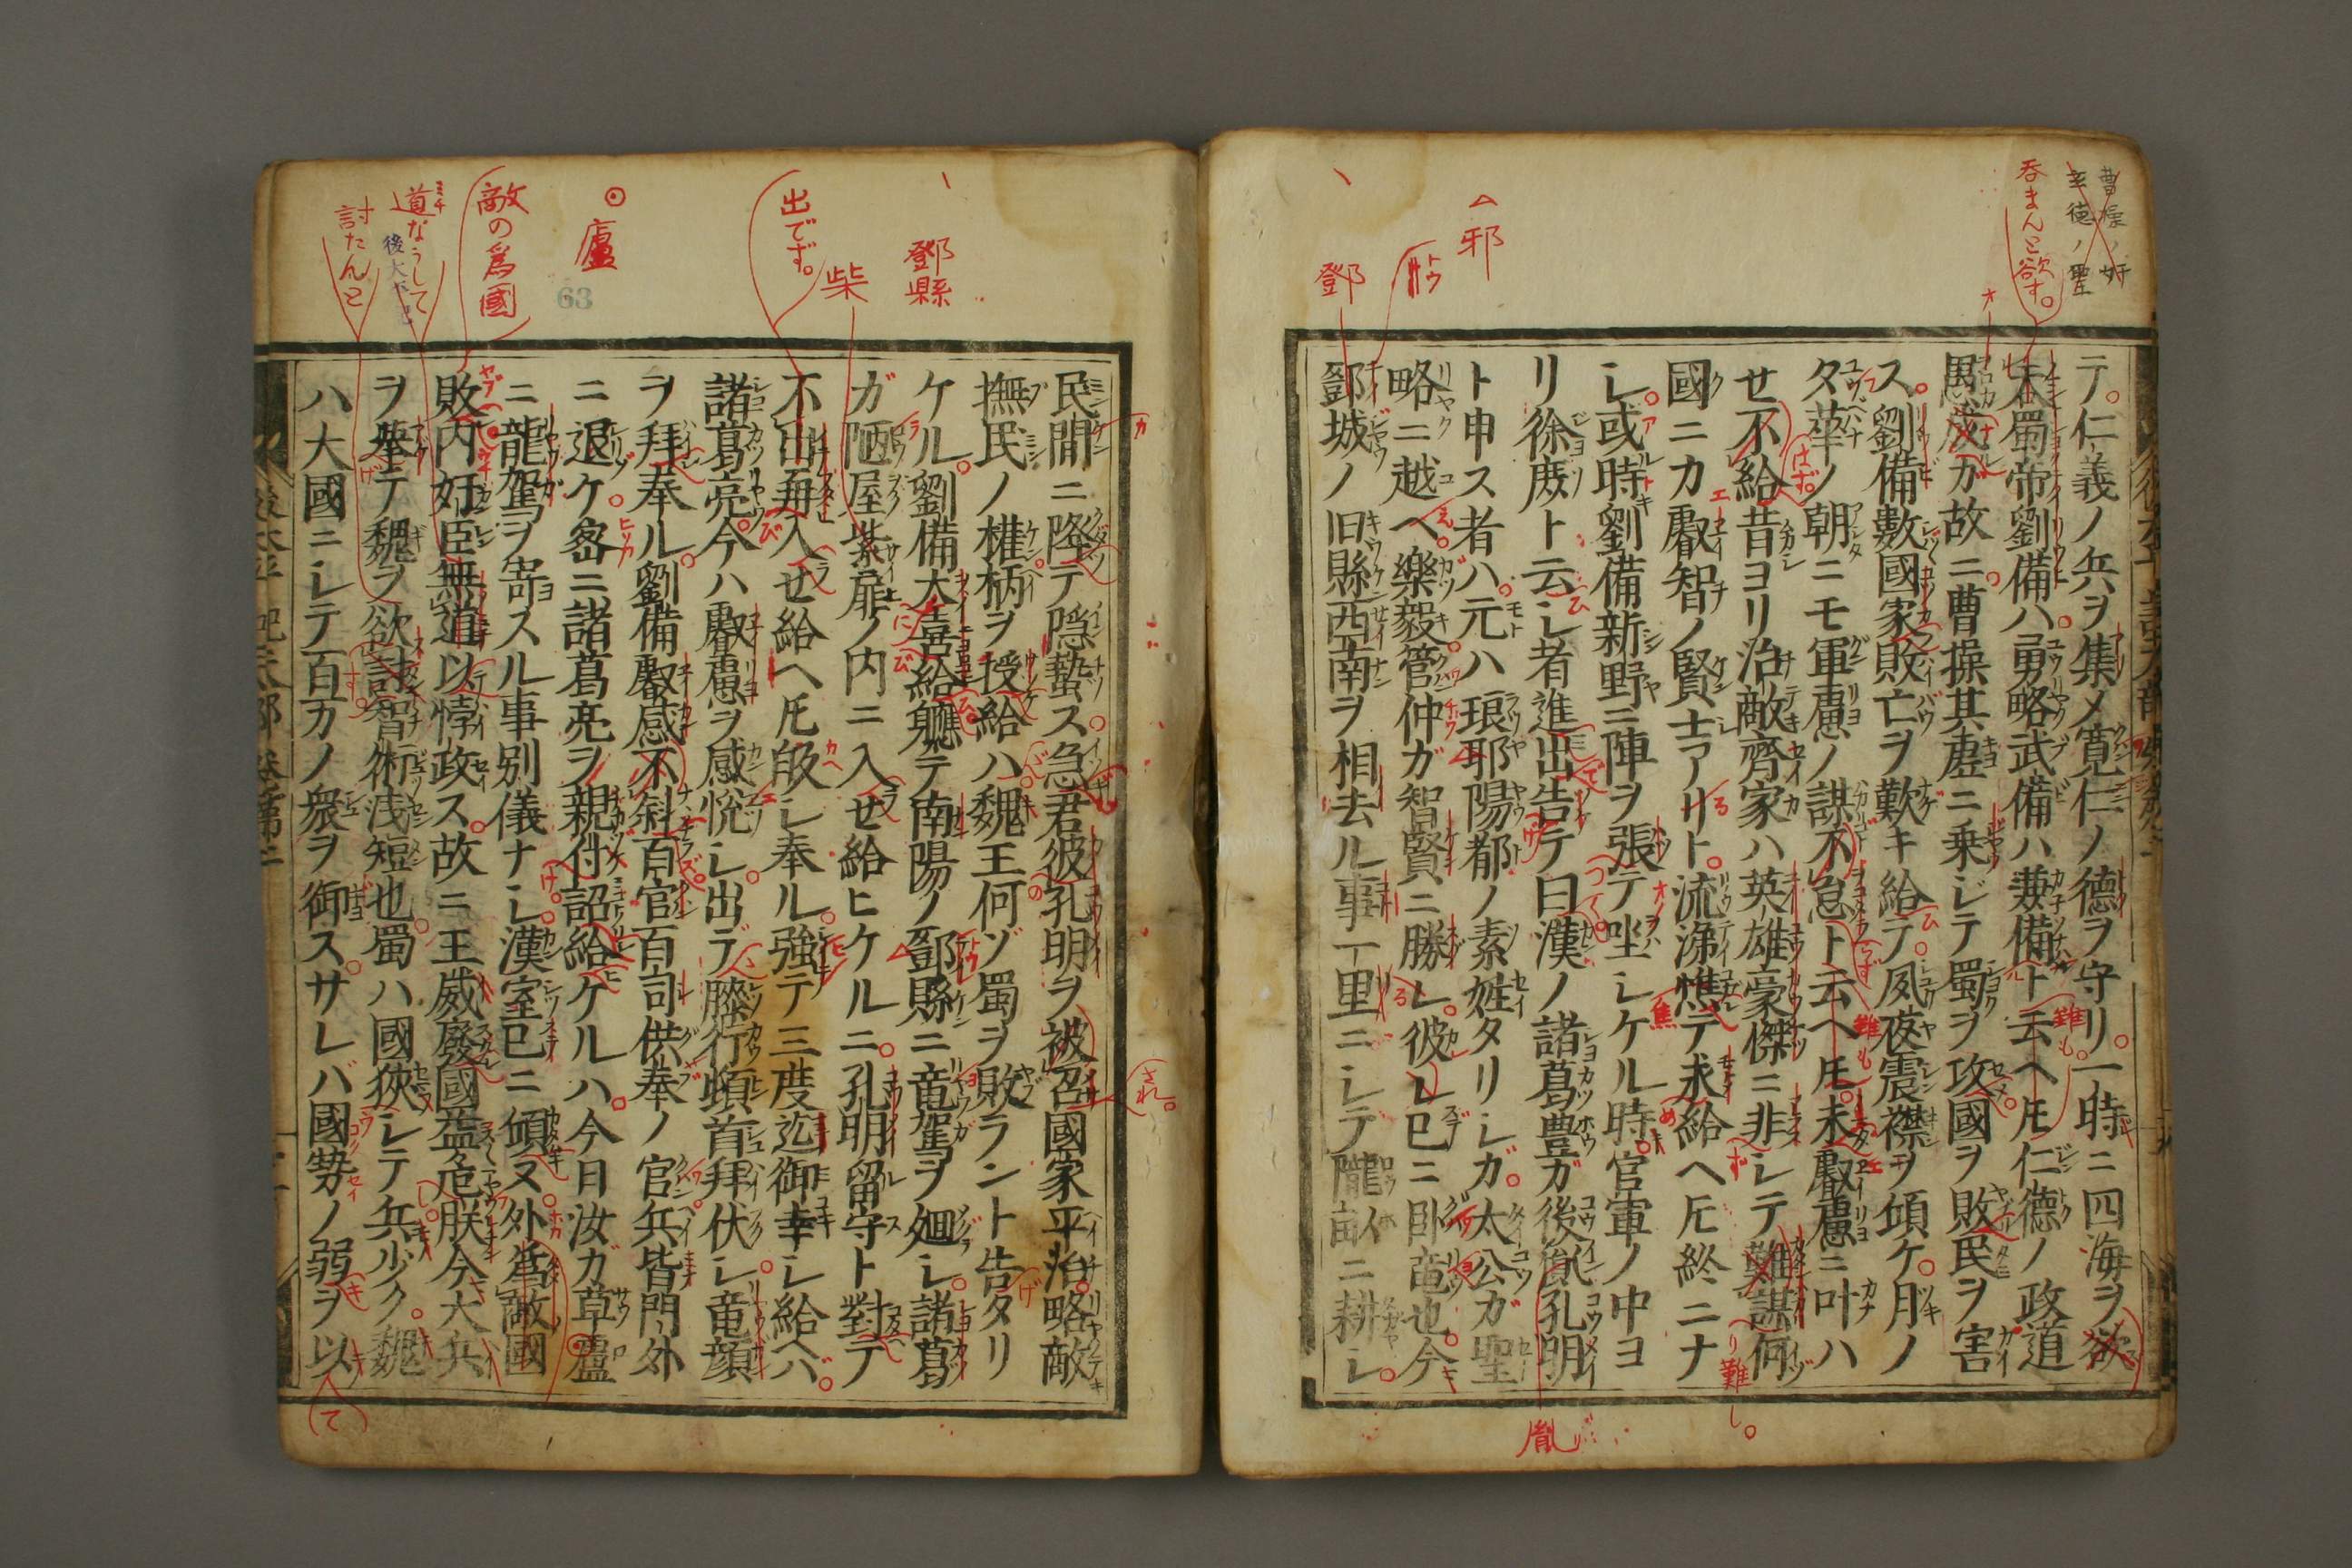 テ仁義ノ兵ヲ集メ寛仁ノ德ヲ守リ一時ニ四海ヲ欲
蜀帝劉備ハ勇略武備ハ兼備ト云ヘ𪜈仁德ノ政道
愚ガ故ニ曹操其虚ニ乗ジテ蜀ヲ攻國ヲ敗民ヲ害
ス劉備數國家敗亡ヲ歎キ給テ夙夜震襟ヲ傾ケ月ノ
夕華ノ朝ニモ軍慮ノ謀不怠ト云ヘ𪜈未叡慮ニ叶ハ
せ不給昔ヨリ治敵齊家ハ英雄豪傑ニ非レテ難謀何
國ニカ叡智ノ賢士アリト流涕憔テ求給ヘ𪜈終ニナ
シ或時劉備新野ニ陣ヲ張テ坐シケル時官軍ノ中ヨ
リ徐庶ト云シ者進出告テ曰漢ノ諸葛豊ガ後胤孔明
ト申ス者ハ元ハ琅耶陽都ノ素姓タリシガ太公ガ聖
略ニ越ヘ樂毅管仲ガ智賢ニ勝レ彼レ已ニ臥竜也今
鄧城ノ旧縣西南ヲ相去ル事一里ニシテ隴畝ニ耕シ
民間ニ降テ隠蟄ス急君彼孔明ヲ被召國家平治略敵
撫民ノ權柄ヲ授給ハ魏王何ゾ蜀ヲ敗ラント告タリ
ケル劉備大喜給軈テ南陽ノ鄧縣ニ竜駕ヲ廻シ諸葛
ガ陋屋柴扉ノ内ニ入せ給ヒケルニ孔明留守ト對テ
不出再入せ給ヘ𪜈皈シ奉ル強テ三度迄御幸シ給ヘバ
諸葛亮今ハ叡慮ヲ感悅シ出デ膝行頓首拜伏シ竜顔
ヲ拜奉ル劉備叡感不斜百官百司供奉ノ官兵皆門外
ニ退ケ密ニ諸葛亮ヲ親付詔給ケルハ今日汝ガ草廬
ニ龍駕ヲ寄スル事別儀ナシ漢室已ニ傾ヌ外爲敵國
敗内奸臣無道以悖政ス故ニ王威廢國益危朕今大兵
ヲ擧テ魏ヲ欲討智術浅短也蜀ハ國狹シテ兵少ク魏
ハ大國ニシテ百万ノ衆ヲ御スサレバ國勢ノ弱ヲ以
曹操ノ奸
呑まんと欲す。
邪
鄧
鄧縣
柴
出でず。
廬
63
敵の爲國
道なうして
後太平記
討たんと
胤
難し。
され。